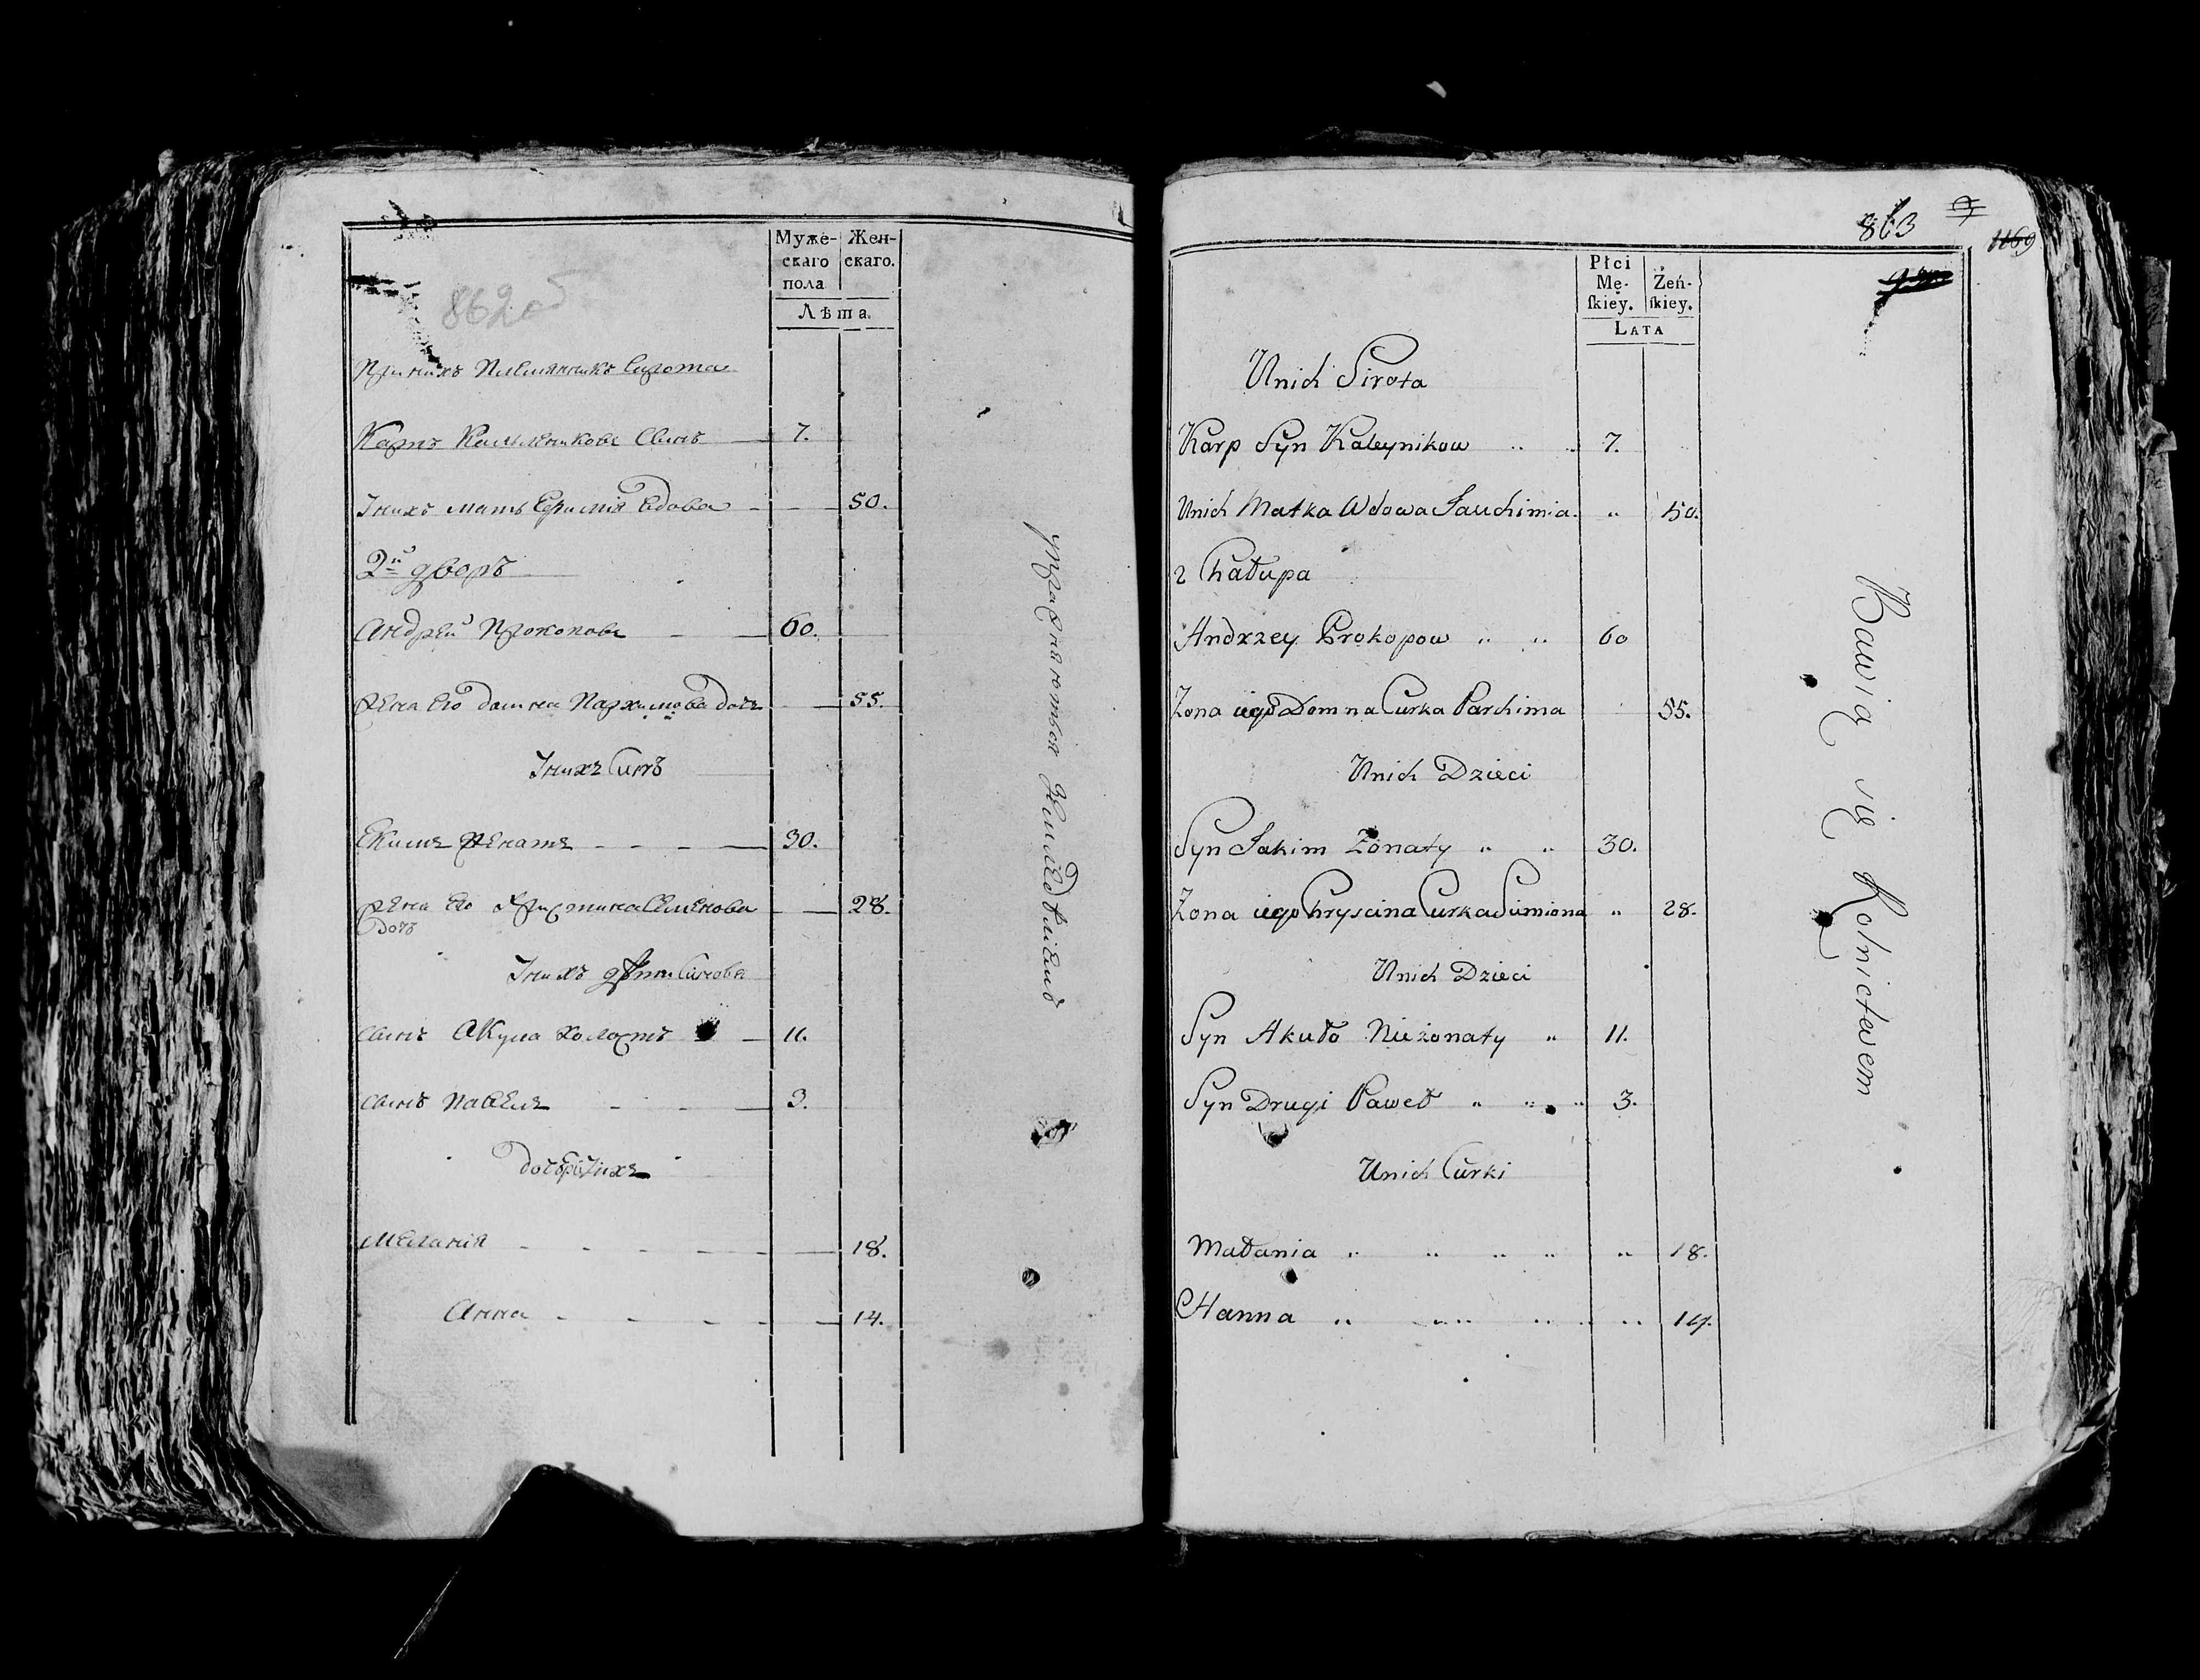 862об
Муже-
скаго
пола
Жен-
скаго.
Лѣта.
При нихъ Племянникъ Сирота
Карпъ Калѣниковъ Сынъ 7.
У нихъ мать Вдова 50.
2й дворъ
Андрей Прокоповъ 60.
Жена его Домна Пархимова дочь 55.
У нихъ Сынъ
Екимъ Женатъ 30.
Жена Его Христина Семенова 28.
дочь
У нихъ дѣти Сынова
Сынъ Акула холостъ 11.
Сынъ Павелъ 3.
Мелания 18.
Анна 14.
упражняются Земледѣлиемъ
863
3
1169
Płci
Mę-
ſkiey.
Żeń-
ſkiey.
LATA
Unich Sirota
Karp Syn Kaleynikow 7.
Unich Matka Wdowa Jauchimia 50.
2 Chałupa
Andrzey Prokopow 60
Zona iego Domna Curka Parchima 55.
Unich Dzieci
Syn Jakim Zonaty 30.
Zona iego Chryscina Curka Simiona 28.
Unich Dzieci
Syn Akuło Nieżonaty 11.
Syn Drugi Paweł 3.
Unich Curki
Małania 18.
Hanna 14.
Bawią się Rolnictwem